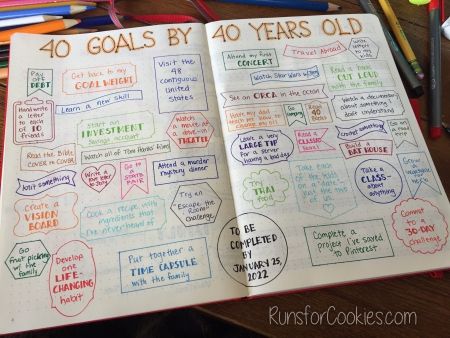 40 GOALS BY 40 YEARS OLD
Pay
off
DEBT
Get back to my
GOAL WEIGHT
Visit the
48
contiguous
united
states
Learn a new skill
Hand write
a letter
to each
of 10
friends
Start an
INVESTMENT
Savings account
Watch a
movie at
a drive-in
THEATER
Read the Bible
COVER to COVER
Watch all of Tom Hanks' films
knit something
Go to a
STATE
FAIR
Attend a murder
mystery dinner
Create a
VISION
BOARD
Cook a recipe with
ingredients that
I've never heard of
Try an
Escape the
Room
challenge
Go
fruit picking w/
the family
Develop
one
LIFE-
CHANGING
habit
Put together a
TIME CAPSULE
with the family
Attend my first
CONCERT
Travel Abroad
Write
letters to
my kids
Watch Star Wars
Read a
OUT LOUD
with the family
See an ORCA in the ocean
Have my dad
teach me how
to change my oil
Go
Read
40
Watch a documentary
about something I
don't understand
Leave a very
LARGE TIP
for a server
having a bad day
Read a
CLASSIC
Crochet something
Build a
BAT HOUSE
Try
THAI
food
Take each
of the kids
on a date
just the two
of us
Take a
CLASS
about
anything
Grow
a
TO BE
COMPLETED
BY
JANUARY 25,
2022
Complete a
project I've saved
to Pinterest
Commit
to a
30-DAY
challenge
RunsforCookies.com